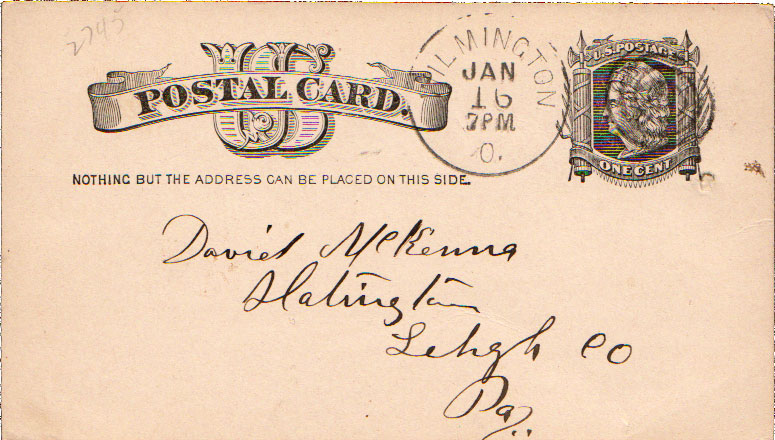 2745
US
POSTAL CARD.
NOTHING BUT THE ADDRESS CAN BE PLACED ON THIS SIDE.
WILMINGTON
JAN
16
7PM
O.
U.S. POSTAGE
ONE CENT
David McKenna
Slatington
Lehgh Co
Pa.